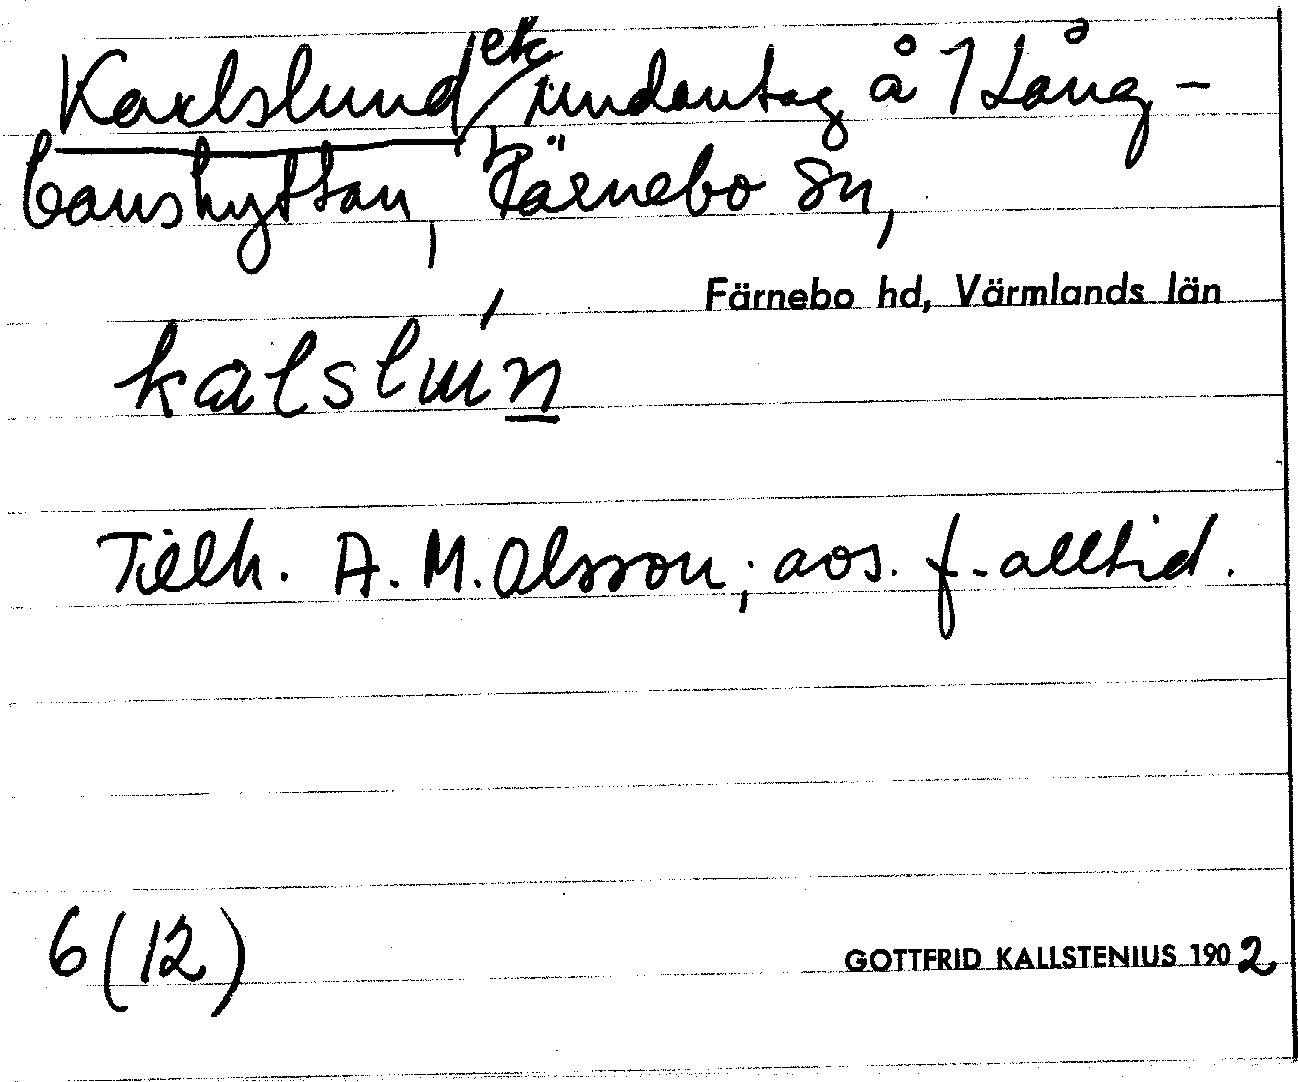 Karlslund, ek undantag å 1 Lång-
banshyttan, Färnebo sn,
Färnebo hd, Värmlands län
kalslun
Tillh. A. M. Olsson; aos. f. alltid.
6 (12)
GOTTFRID KALLSTENIUS 1902